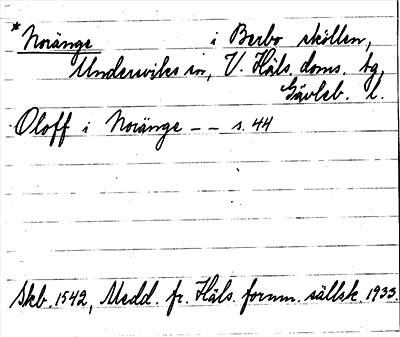 *Noränge i Berbo skóllen,
Undersvikes sn, V. Häls. doms. sg
Gävleb. l.
Oloff i Noränge -- s. 44
Skb. 1542, Medd. fr. Häls. fornm. sällsk. 1933.